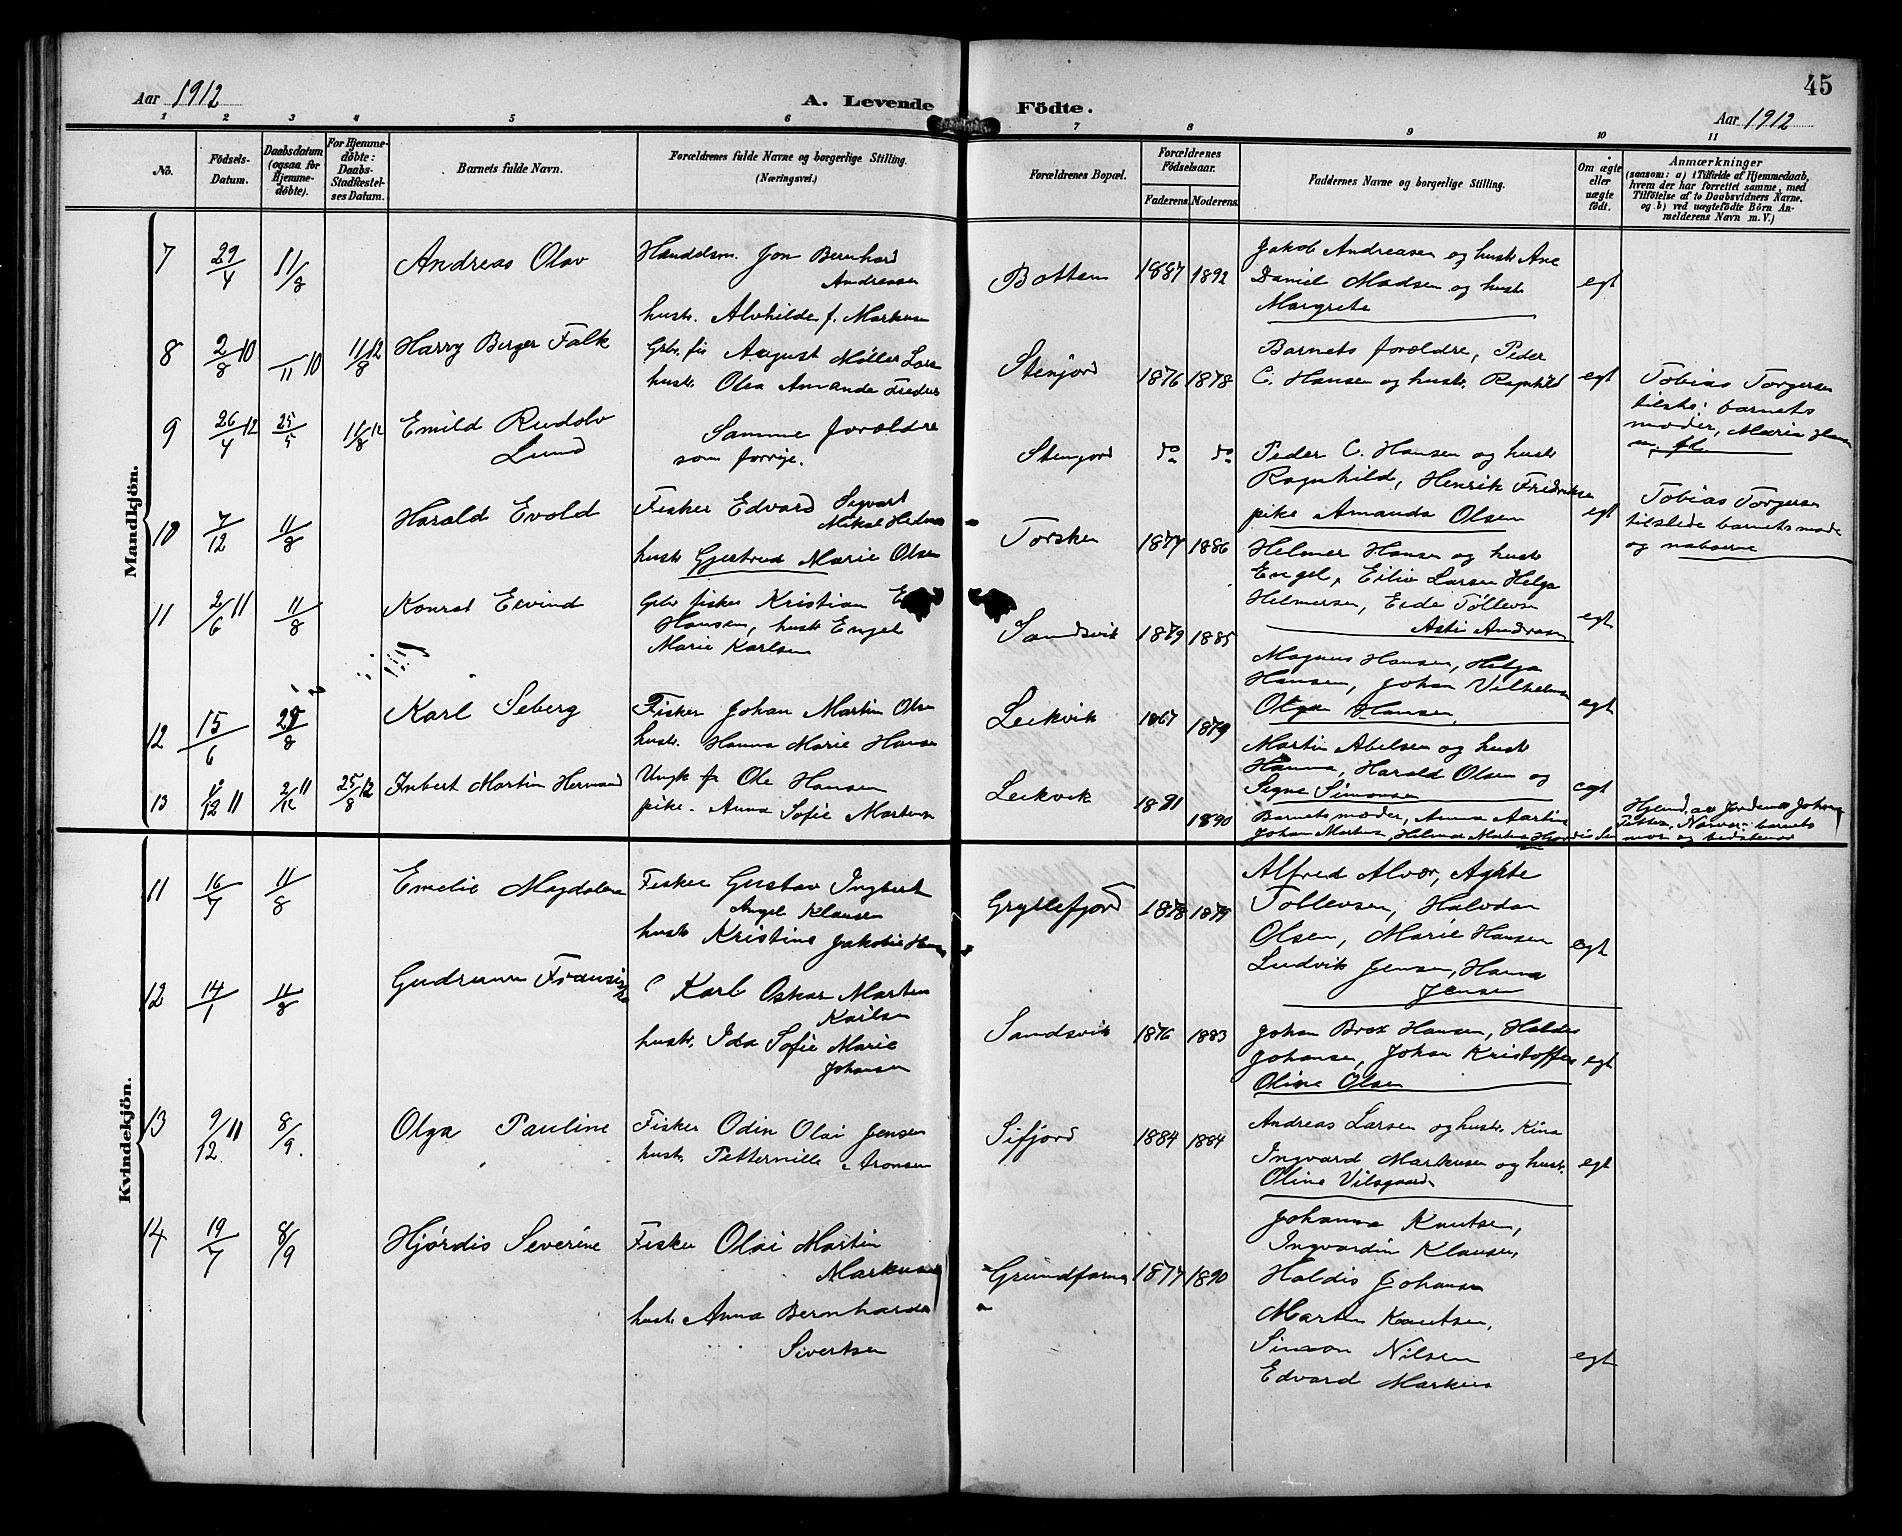 Aar 1912
A. Levende Födte.
Aar 1912
45
1 2 3 4 5 6 7 8 9 10 11
No.
Födsels-
Datum.
Daabsdatum
(ogsaa for
Hjemme-
döbte).
For Hjemme-
döbte:
Daabs-
Stadfæstel-
ses Datum.
Barnets fulde Navn.
Forældrenes fulde Navne og borgerlige Stilling.
(Næringsvei.)
Forældrenes Bopæl.
Forældrenes
Födselsaar.
Faderens. Moderens.
Faddernes Navne og borgerlige Stilling.
Om ægte
eller
uægte
födt.
Anmærkninger
(saasom: a) i Tilfælde af Hjemmedaab,
hvem der har forrettet samme, med
Tilföielse af to Daabsvidners Navne.
og b) ved uægtefödte Börn An-
melderens Navn m. V.)
Mandkjön.
7 29/4 11/8 Andreas Olav
Handelsm. Jon Bernhard
Andreasen
hustr. Alvhilde f. Markusen
Botten 1887 1892
Jakob Andreasen og hustr Ane
Daniel Madsen og hustr
Margrete
egt
8 2/8 10 /11 10 11/8 12 Harry Birger Falk
Grbr. fis August Møller Lars
hustr. Olea Amanda Fredrik
Stenjord 1876 1878
Barnets forældre, Peder
C. Hansen og hustr. Ragnhild
egt
Tobias Torgersen
tilste: barnets
moder, Marie Hansen
9 26/4 12 25/5 11/8 12 Emild Rudolv
Lund
Samme forældre
som forrige.
Stenjord do do
Peder C. Hansen og hustr
Ragnhild, Henrik Fredriksen
pike Amanda Olsen
egt
Tobias Torgersen
tilstede barnets mode
og naboerne
10 7/12 11/8 Harald Evold
Fisker Edvard Sigvart
Mikal Helmer
hustr Gjertrud Marie Olsen
Torsken 1877 1886
Helmer Hansen og hustr
Engel, Eiliv Larsen Helga
Helmersen, Eide Tollevsen
Asti Andreasen
11 2/6 11 11/8 Konrat Eivind
Grbr fisker Kristian
Hansen, hustr Engel
Marie Karlsen
Sandsvik 1879 1885
egt
Magnus Hansen, Helga
Hansen, Johan Vilhelmsen
Olga Hansen,
12 15/6 25/8 Karl Seberg
Fisker Johan Martin Olsen
hustr. Hanna Marie Hansen
Leikvik 1867 1879
egt
Martin Abelsen og hustr
Hanna, Harald Olsen og
Signe Simonsen
13 /12 11 2/12 11 25/8 12 Inbert Martin Hermand
Ungk fr Ole Hansen
pike. Anna Sofie Martensen
Leikvik 1891 1890
egt
Barnets moder, Anna Aartine
Johan Martin, Helmer Martin
Hjemd. av Jordmor Johan
barnets
mor og bedstemor
Kvindekjön.
11 16/7 11/8 Emelie Magdalena
Fisker Gustav Ingbert
Angel Klausen
hustr Kristine Jakobie Hansen
Gryllefjord 1878 1879
Alfred Alvor, Agate
Tollevsen, Halvdan
Olsen, Marie Hansen
Ludvik Jensen, Hanna
Jensen
egt
12 14/1 11/8 Gudrunn Fransiska
Karl Oskar Marten
Karlsen
hustr. Ida Sofie Marie
Johansen
Sandsvik 1876 1883
Johan Brox Hansen, Haldis
Johansen, Johan Kristoffer
Oline Olsen
egt
13 9/12 11 8/9. Olga Pauline
Fisker Odin Olai Jensen
hustr. Petternille Aronsen
Sifjord 1884 1884
Andreas Larsen og hustr. Kina
Ingvard Markusen og hustr.
Oline Vilsgaard
egt
14 19/7 8/9 Hjørdis Severine
Fisker Olai Martin
Markusen
hustr Anna Bernharda
Sivertsen
Grundfarnes 1877 1890
Johanna Knutsen,
Ingvardin Klausen,
Haldis Johansen
Marten Knutsen,
Simon Nilsen
Edvard Markus
egt